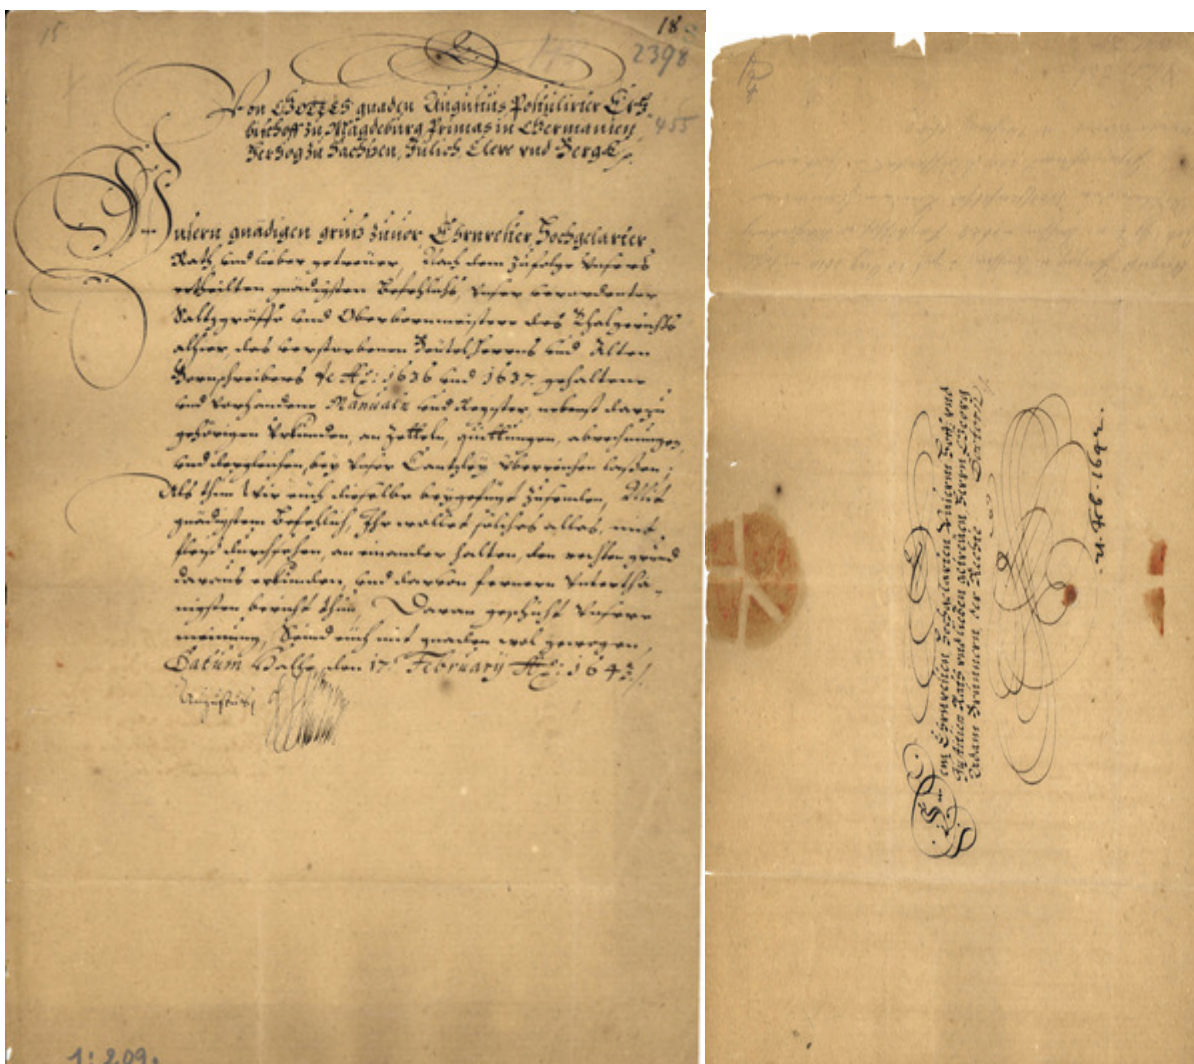 15
18.
2398
455
Von GOTTES gnaden Augustus Postulirter Ertz-
bischoff zu Magdeburg Primas in Germanien,
Hertzog zu Sachssen, Jülich, Cleve vnd Bergk
Vnsern gnädigen gruß zuuor Ehrnvester, Hochgelarter
Rath, vnd lieber getreuer, Nach dem zufolge Vnsers
ertheilten gnädigsten Befehlichs, Vnser verordenter
Saltzgräffe vnd Oberbornmeistere des Thalgerichts
alhier, des verstorbenen Beutelherrns vnd Alten
Bornschreibers de Aõ: 1636 vnd 1637. gehaltene
vnd vorhandene Manualia vnd Register, nebenst darzu
gehörigen Vrkunden, an Zetteln, Quittungen, abrechnungen,
vnd dergleichen, bey Vnser Cantzley überreichen laßen;
Als thun Wir euch dieselbe beygefügt zusenden, Mit
gnädigstem Befehlich, Ihr wollet solches alles, mit
fleiß durchsehen, an einander halten, den rechten grund
daraus erkunden, vnd davon fernern Vnterthä-
nigsten bericht thun, Daran geschicht Vnsere
meinung, Seind euch mit gnaden wol gewogen,
Datum Halle, den 17. February Aõ: 1643
Augustus
1: 209.
Dem Ehrnvesten Hochgelarten Vnserm Hoff vnd
Justitien Rath vnd lieben getreuen, Herrn Georg
Adam Brunnern der Rechte Doctori